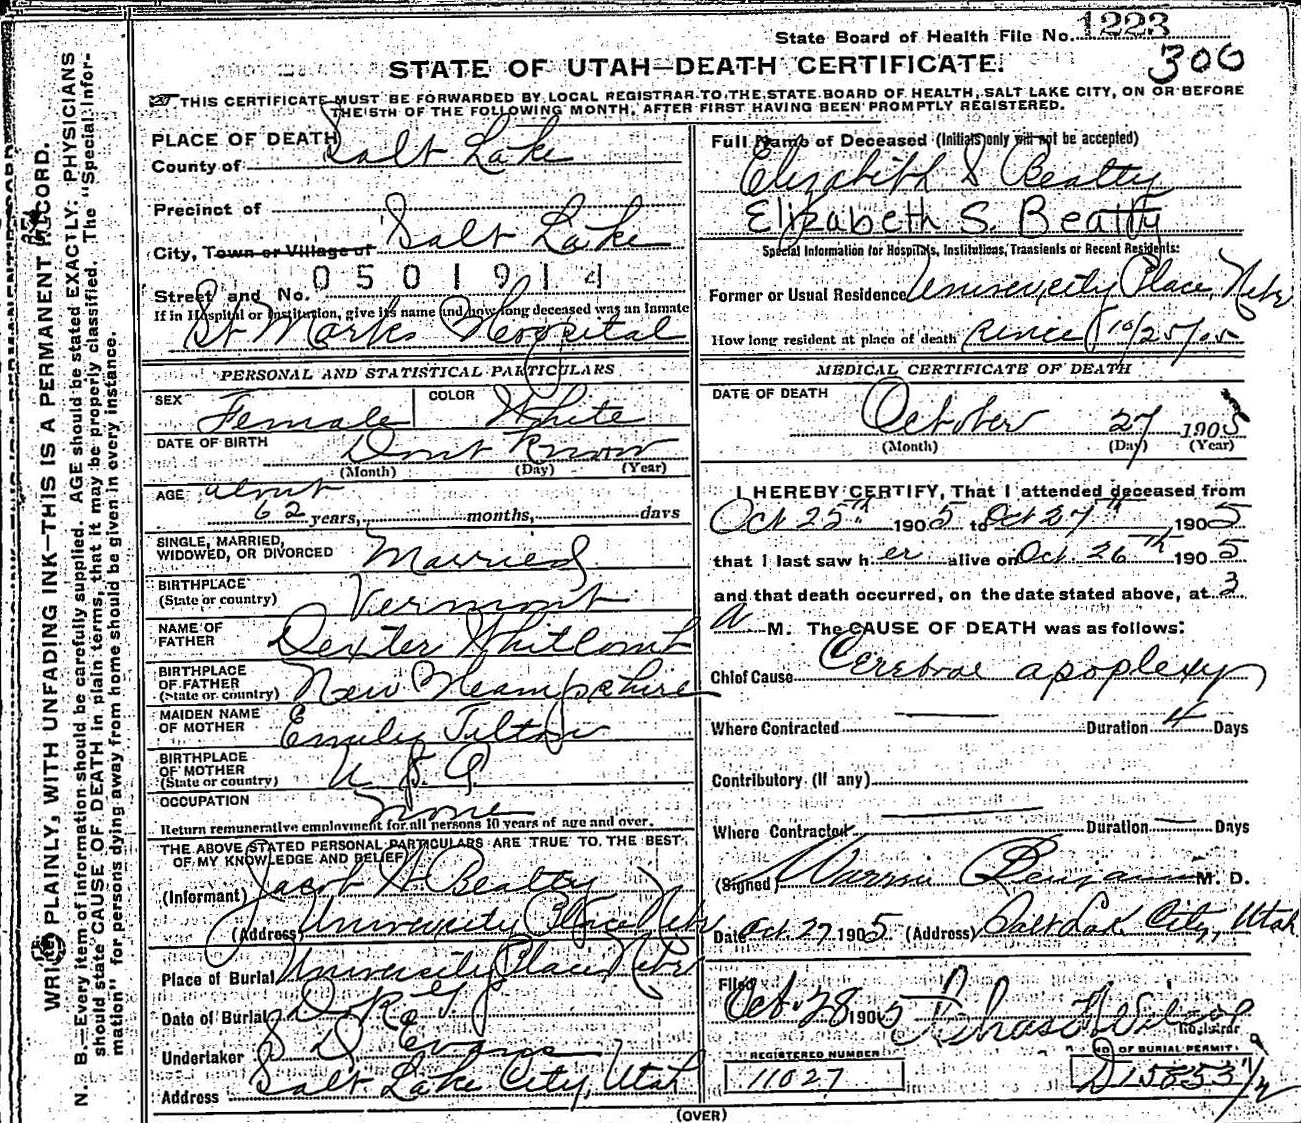 State Board of Health File No. 1223
306
STATE OF UTAH—DEATH CERTIFICATE.
THIS CERTIFICATE MUST BE FORWARDED BY LOCAL REGISTRAR TO THE STATE BOARD OF HEALTH, SALT LAKE CITY, ON OR BEFORE
THE 5TH OF THE FOLLOWING MONTH, AFTER FIRST HAVING BEEN PROMPTLY REGISTERED.
WRITE PLAINLY, WITH UNFADING INK—THIS IS A PERMANENT RECORD.
N. B.—Every item of information should be carefully supplied. AGE should be stated EXACTLY. PHYSICIANS
should state CAUSE OF DEATH in plain terms, that it may be properly classified. The "Special Infor-
mation" for persons dying away from home should be given in every instance.
PLACE OF DEATH
County of Salt Lake
Precinct of
City, Town or Village of Salt Lake
0501914
Street and No.
If in Hospital or Institution, give its name and how long deceased was an inmate
St Marks Hospital
PERSONAL AND STATISTICAL PARTICULARS
SEX Female COLOR White
DATE OF BIRTH Dont Know
(Month) (Day) (Year)
AGE about
62 years, months, days
SINGLE, MARRIED,
WIDOWED, OR DIVORCED Married
BIRTHPLACE
(State or country) Vermont
NAME OF
FATHER Dexter Whitcomb
BIRTHPLACE
OF FATHER
(State or country) New Hampshire
MAIDEN NAME
OF MOTHER Emily Tilton
BIRTHPLACE
OF MOTHER
(State or country) U. S. A
OCCUPATION None
Return remunerative employment for all persons 10 years of age and over.
THE ABOVE STATED PERSONAL PARTICULARS ARE TRUE TO THE BEST
OF MY KNOWLEDGE AND BELIEF
(Informant) Jacob H Beatty
(Address University Place Nebr
Place of Burial University Place Nebr
Date of Burial
Undertaker S D Evans
Address Salt Lake City, Utah
Full Name of Deceased (Initials only will not be accepted)
Elizabeth S Beatty
Elizabeth S. Beatty
Special Information for Hospitals, Institutions, Transients or Recent Residents:
Former or Usual Residence University Place, Nebr
How long resident at place of death since 10/25/05
MEDICAL CERTIFICATE OF DEATH
DATE OF DEATH
October 27 1905
(Month) (Day) (Year)
I HEREBY CERTIFY, That I attended deceased from
Oct 25th 1905 to Oct 27th, 1905
that I last saw her alive on Oct. 26th 1905
and that death occurred, on the date stated above, at 3
A M. The CAUSE OF DEATH was as follows:
Chief Cause Cerebral apoplexy
Where Contracted — Duration 4 Days
Contributory (If any)
Where Contracted — Duration — Days
(Signed) Warren Benjamin M. D.
Date Oct. 27 1905 (Address) Salt Lak City, Utah
Filed Oct. 28 1905
Registrar
REGISTERED NUMBER
11027
NO. OF BURIAL PERMIT
D 15853 1/2
(OVER)